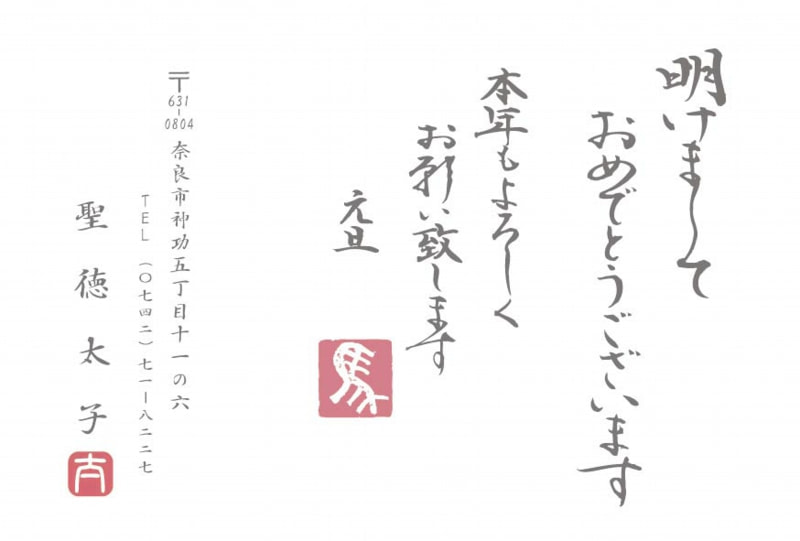 明けまして
おめでとうございます
本年もよろしく
お願い致します
元旦
馬
〒631-0804
奈良市神功五丁目十一の六
TEL（〇七四二）七一ー八二二七
聖徳太子